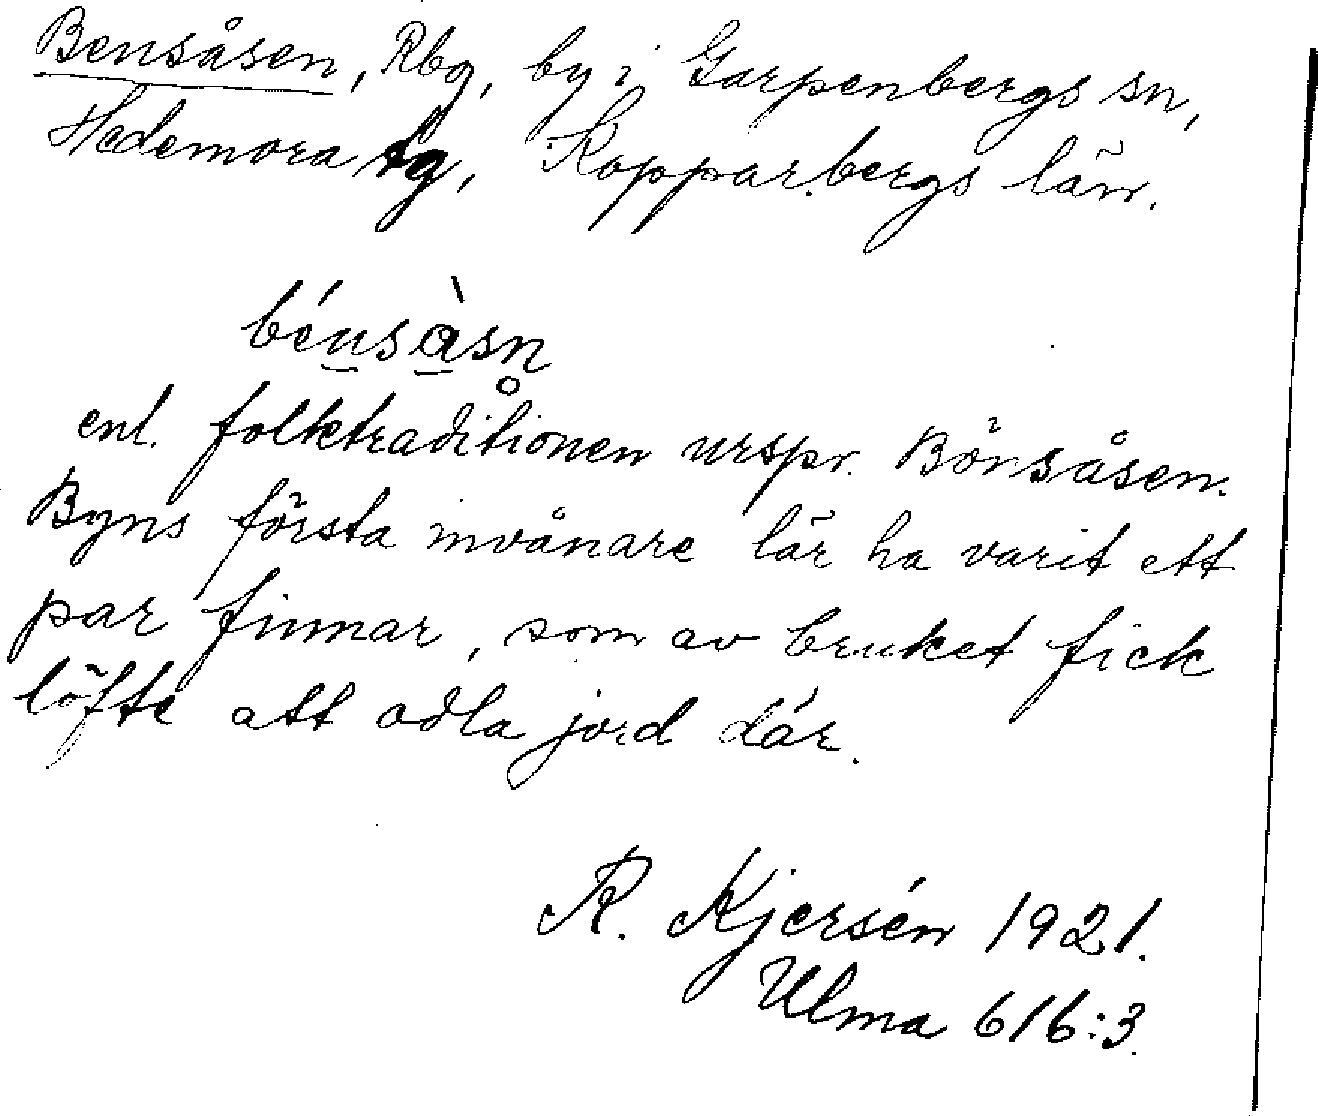 Bensåsen, Rbg, by i Garpenbergs sn,
Hedemora tg, Kopparbergs län.
bénsàsn
enl. folktraditionen urspr. Bönsåsen.
Byns första invånare lär ha varit ett
par finnar, som av bruket fick
löfte att odla jord där.
R. Kjersén 1921.
Ulma 616:3.